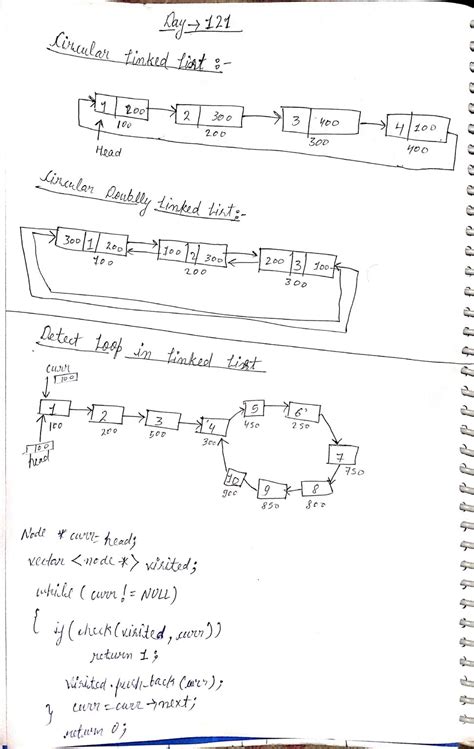 Day → 121
Circular Linked List :-
1 200 2 300 3 400 4 100
100 200 300 400
Head
Circular Doublly Linked List:-
300 1 200 100 2 300 200 3 100
100 200 300
Detect Loop in Linked List
curr
100
1 2 3 4 5 6 7 8 9 10
100 200 500 300 450 250 750 800 850 900
100
head
Node * curr = head;
vector <node *> visited;
while ( curr != NULL)
{ if (check (visited, curr))
return 1;
visited.push_back (curr);
} curr = curr → next;
return 0;